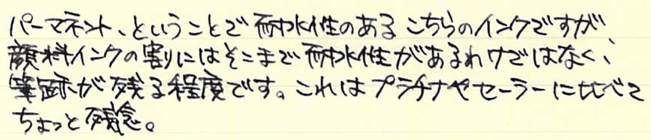 パーマネント、ということで耐水性のあるこちらのインクですが
顔料インクの割にはそこまで耐水性があるわけではなく、
筆跡が残る程度です。これはプラチナやセーラーに比べて
ちょっと残念。